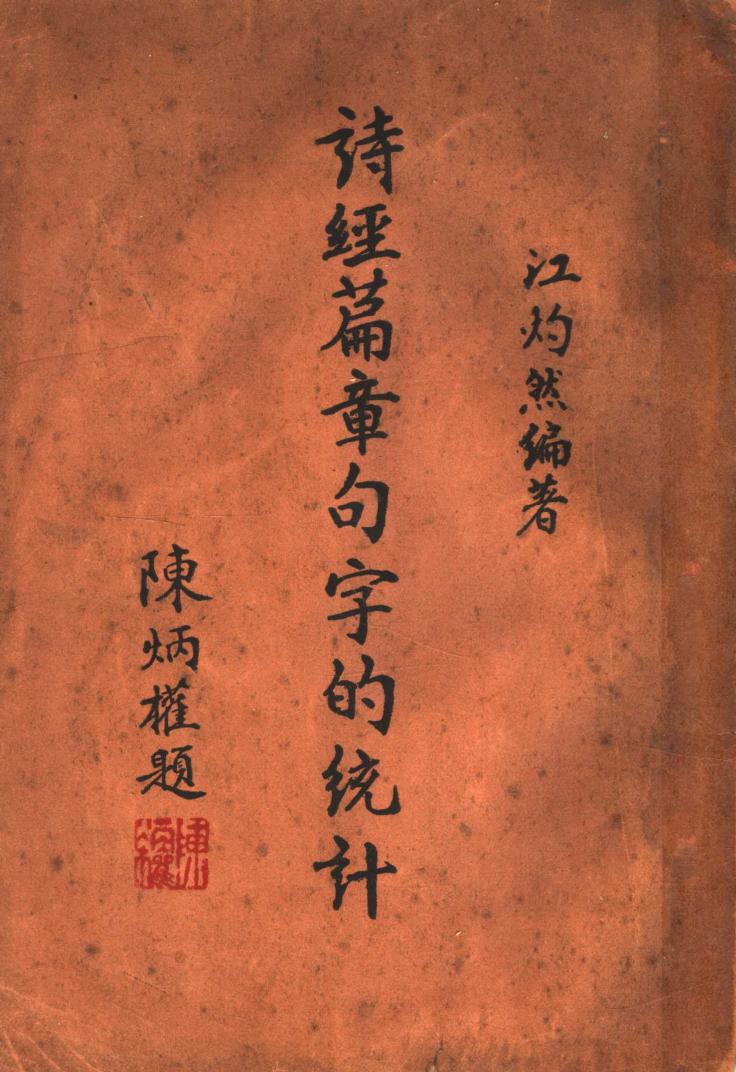 江灼然編著
詩經篇章句字的統計
陳炳權題